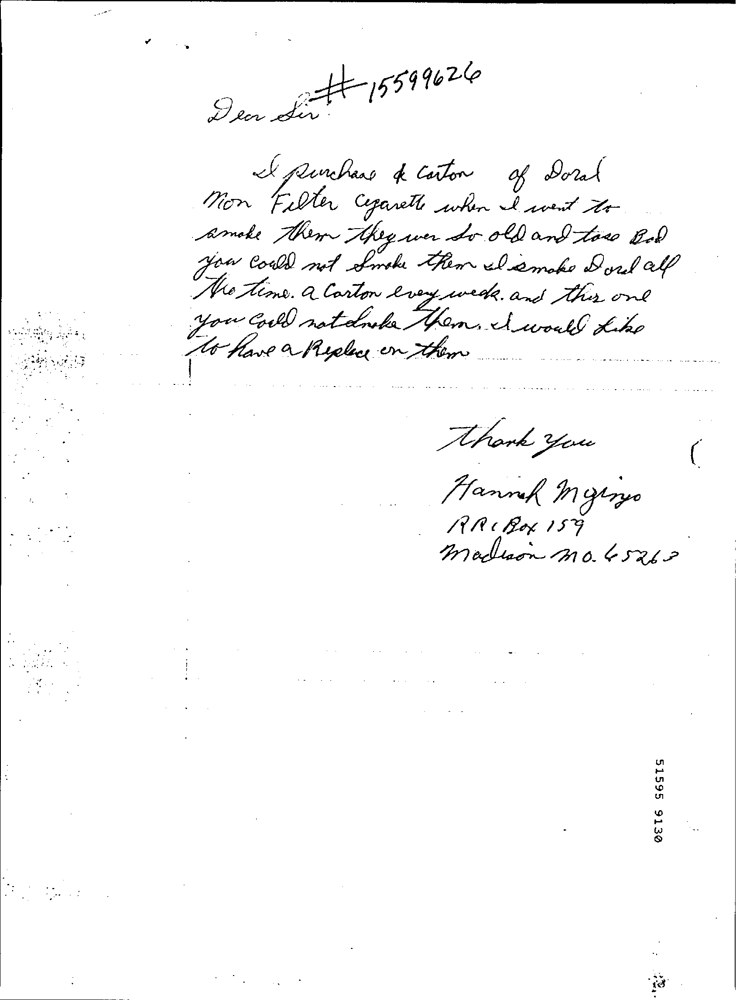 # 15599626
Dear Sir!
I purchase & Carton of Doral
Mon Filter Cigarette when I went to
smoke them they wer so old and tase Bad
you could not Smoke them I smoke Doral all
the time. a Carton evey week. and this one
you Could not smoke them. I would Like
to have a Replace on them
Thank You
Hannah
RR1 Box 159
Madison MO. 65263
51595 9130